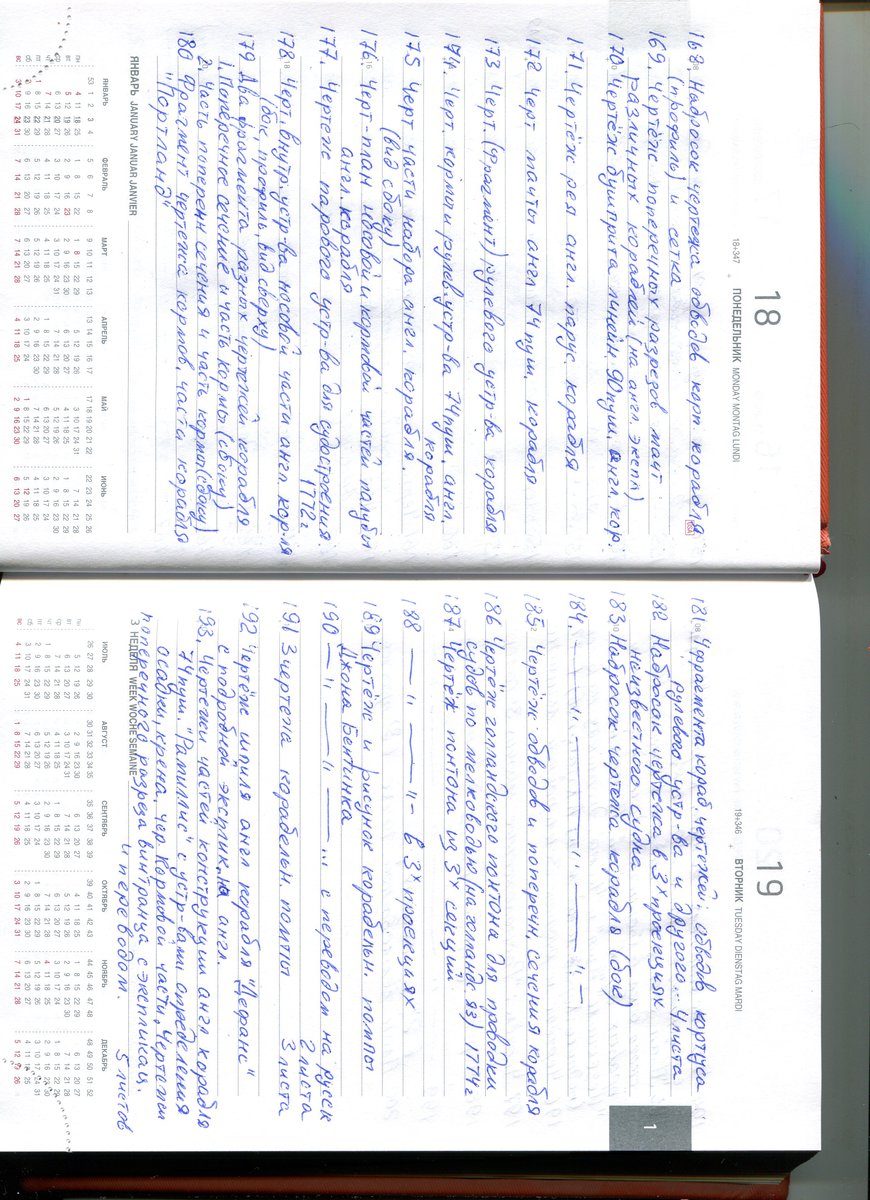 18
18+347 ПОНЕДЕЛЬНИК MONDAY MONTAG LUNDI
168. Набросок чертежа обводов корп. корабля
(профиль) и сетка
169. Чертёж поперечных разрезов мачт
различных кораблей (на англ. экспл)
170. Чертёж бушприта линейн. 90 пуш. англ. кор.
171. Чертёж рея англ. парус. корабля
172 Черт мачты англ 74 пуш. корабля
173 Черт. (Фрагмент) рулевого устр-ва корабля
174. Черт. кормы и рулев. устр-ва 74 пуш. англ.
корабля
175 Черт части набора англ. корабля.
(вид сбоку)
176. Черт-план носовой и кормовой частей палубы
англ. корабля
177. Чертеж парового устр-ва для судостроения.
1772 г
178. Черт. внутр. устр-ва носовой части англ. кор-ля
(бок, профиль, вид сверху)
179 Два фрагмента разных чертежей корабля
1. Поперечное сечение и часть кормы (сбоку)
2. Часть поперечн сечения и часть кормы (сбоку)
180 Фрагмент чертежа кормов. части корабля
"Портланд"
ЯНВАРЬ JANUARY JANUAR JANVIER
ЯНВАРЬ ФЕВРАЛЬ МАРТ АПРЕЛЬ МАЙ ИЮНЬ
19
19+346 ВТОРНИК TUESDAY DIENSTAG MARDI
1
181. 4 фрагмента кораб. чертежей: обводов корпуса
рулевого устр-ва и другого... 4 листа
182 Набросок чертежа в 3х проекциях
неизвестного судна
183 Набросок чертежа корабля (бок)
184. — " — " — " —
185 Чертёж обводов и поперечн. сечения корабля
186 Чертёж голландского понтона для проводки
судов по мелководью (на голландс. яз) 1774 г
187 Чертёж понтона из 3х секций
188 — " — " — в 3х проекциях
189 Чертёж и рисунок корабельн. помпы
Джона Бентинка
190 — " — " — ... с переводом на русск
2 листа
191 3 чертежа корабельн. помпы 3 листа
192 Чертёж шпиля англ корабля "Дефанс"
с подробной эксплик. на англ.
193. Чертежи частей конструкции англ. корабля
74 пуш. "Рамиллис" с устр-вами определения
осадки, крена, чер. кормовой части. Чертежи
поперечного разреза винтранца с экспликац.
и переводом. 5 листов
3 НЕДЕЛЯ WEEK WOCHE SEMAINE
ИЮЛЬ АВГУСТ СЕНТЯБРЬ ОКТЯБРЬ НОЯБРЬ ДЕКАБРЬ